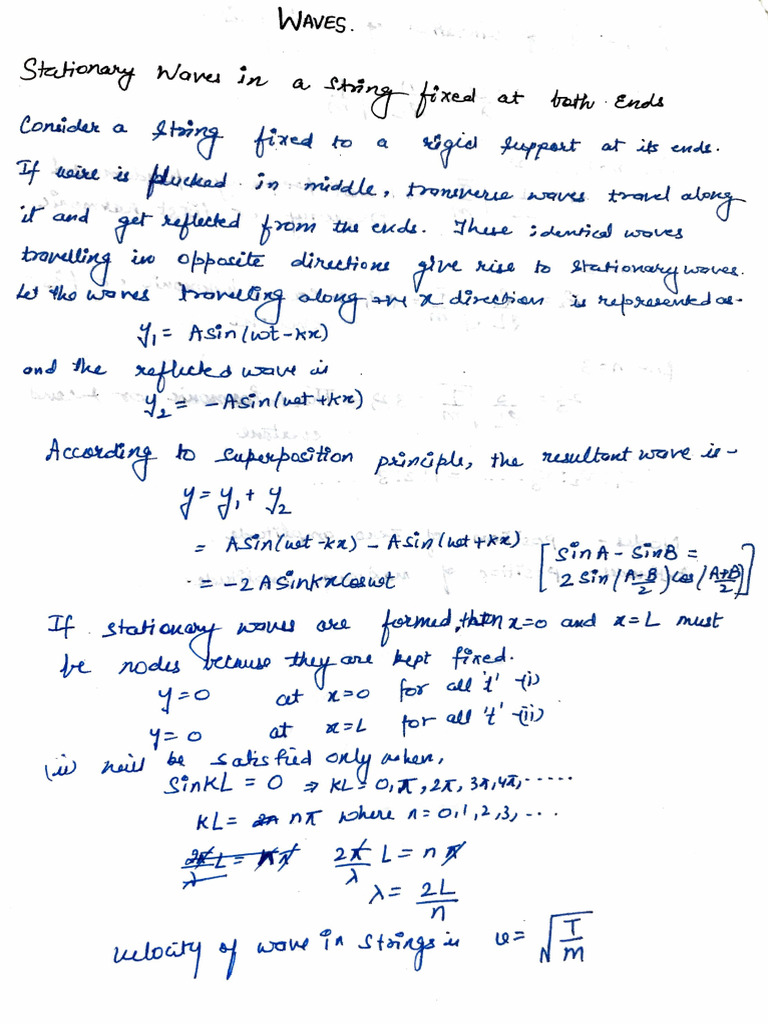 WAVES.
Stationary Waves in a string fixed at both Ends
Consider a string fixed to a rigid support at its ends.
If wire is plucked in middle, transverse waves travel along
it and get reflected from the ends. These identical waves
travelling in opposite directions give rise to stationary waves.
Let the waves travelling along +ve x direction is represented as-
y₁ = A sin(ωt-kx)
and the reflected wave is
y₂ = -A sin(ωt+kx)
According to superposition principle, the resultant wave is -
y = y₁ + y₂
= A sin(ωt-kx) - A sin(ωt+kx) [sinA - sinB =
= -2A sinkx cosωt 2 sin(A-B/2) cos(A+B/2)]
If stationary waves are formed, then x=0 and x=L must
be nodes because they are kept fixed.
y=0 at x=0 for all 't' -(i)
y=0 at x=L for all 't' -(ii)
(ii) will be satisfied only when,
sinKL = 0 ⇒ KL = 0, π, 2π, 3π, 4π, ......
KL = nπ where n = 0, 1, 2, 3, ...
2π/λ L = nπ
λ = 2L/n
velocity of wave in strings is v = √(T/m)